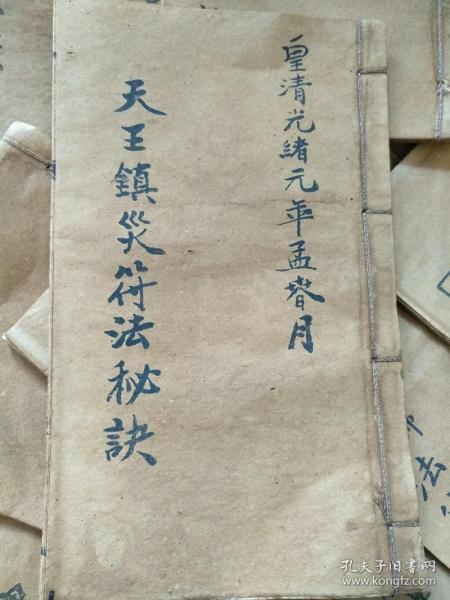 皇清光緒元年孟春月
天王鎮災符法秘訣
法
孔夫子旧书网
www.kongfz.com